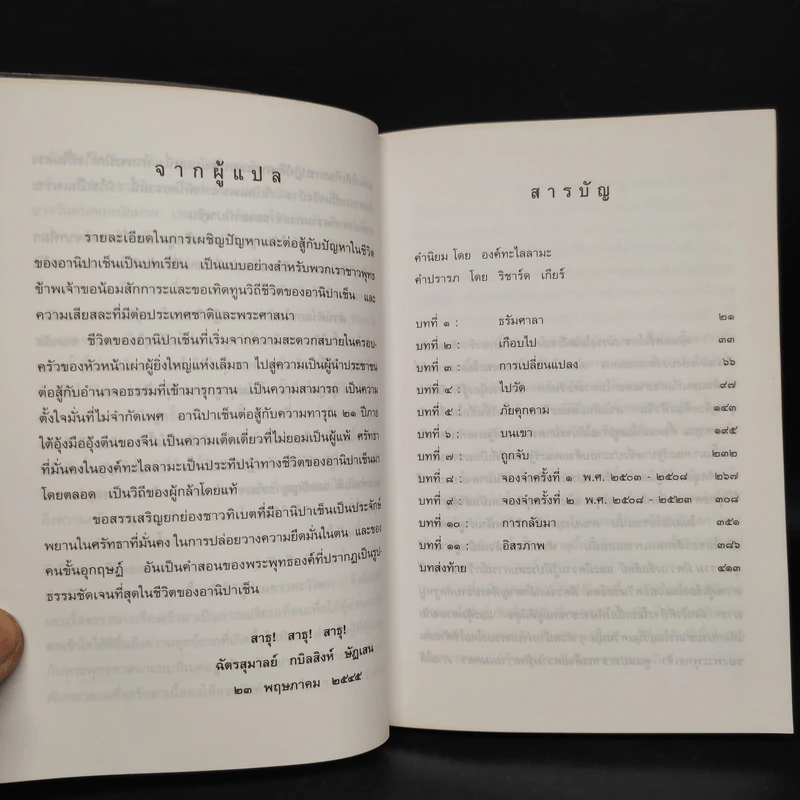 จากผู้แปล
รายละเอียดในการเผชิญปัญหาและต่อสู้กับปัญหาในชีวิต
ของอานิปาเช็นเป็นบทเรียน เป็นแบบอย่างสำหรับพวกเราชาวพุทธ
ข้าพเจ้าขอน้อมสักการะและขอเทิดทูนวิถีชีวิตของอานิปาเช็น และ
ความเสียสละที่มีต่อประเทศชาติและพระศาสนา
ชีวิตของอานิปาเช็นที่เริ่มจากความสะดวกสบายในครอบ-
ครัวของหัวหน้าเผ่าผู้ยิ่งใหญ่แห่งเล็มธา ไปสู่ความเป็นผู้นำประชาชน
ต่อสู้กับอำนาจอธรรมที่เข้ามารุกราน เป็นความสามารถ เป็นความ
ตั้งใจมั่นที่ไม่จำกัดเพศ อานิปาเช็นต่อสู้กับความทารุณ ๒๑ ปีภาย
ใต้อุ้งมืออุ้งตีนของจีน เป็นความเด็ดเดี่ยวที่ไม่ยอมเป็นผู้แพ้ ศรัทธา
ที่มั่นคงในองค์ทะไลลามะเป็นประทีปนำทางชีวิตของอานิปาเช็นมา
โดยตลอด เป็นวิถีของผู้กล้าโดยแท้
ขอสรรเสริญยกย่องชาวทิเบตที่มีอานิปาเช็นเป็นประจักษ์
พยานในศรัทธาที่มั่นคง ในการปล่อยวางความยึดมั่นในตน และของ
คนขั้นอุกฤษฏ์ อันเป็นคำสอนของพระพุทธองค์ที่ปรากฏเป็นรูป-
ธรรมชัดเจนที่สุดในชีวิตของอานิปาเช็น
สาธุ! สาธุ! สาธุ!
ฉัตรสุมาลย์ กบิลสิงห์ ษัฏเสน
๒๓ พฤษภาคม ๒๕๔๕
สารบัญ
คำนิยม โดย องค์ทะไลลามะ
คำปรารภ โดย ริชาร์ด เกียร์
บทที่ ๑ : ธรัมศาลา ๒๑
บทที่ ๒ : เกือบไป ๓๓
บทที่ ๓ : การเปลี่ยนแปลง ๖๖
บทที่ ๔ : ไปวัด ๙๗
บทที่ ๕ : ภัยคุกคาม ๑๔๓
บทที่ ๖ : บนเขา ๑๙๕
บทที่ ๗ : ถูกจับ ๒๓๒
บทที่ ๘ : จองจำครั้งที่ ๑ พ.ศ. ๒๕๐๓ - ๒๕๐๘ ๒๖๗
บทที่ ๙ : จองจำครั้งที่ ๒ พ.ศ. ๒๕๐๘ - ๒๕๒๓ ๓๐๘
บทที่ ๑๐ : การกลับมา ๓๕๑
บทที่ ๑๑ : อิสรภาพ ๓๘๖
บทส่งท้าย ๔๑๓